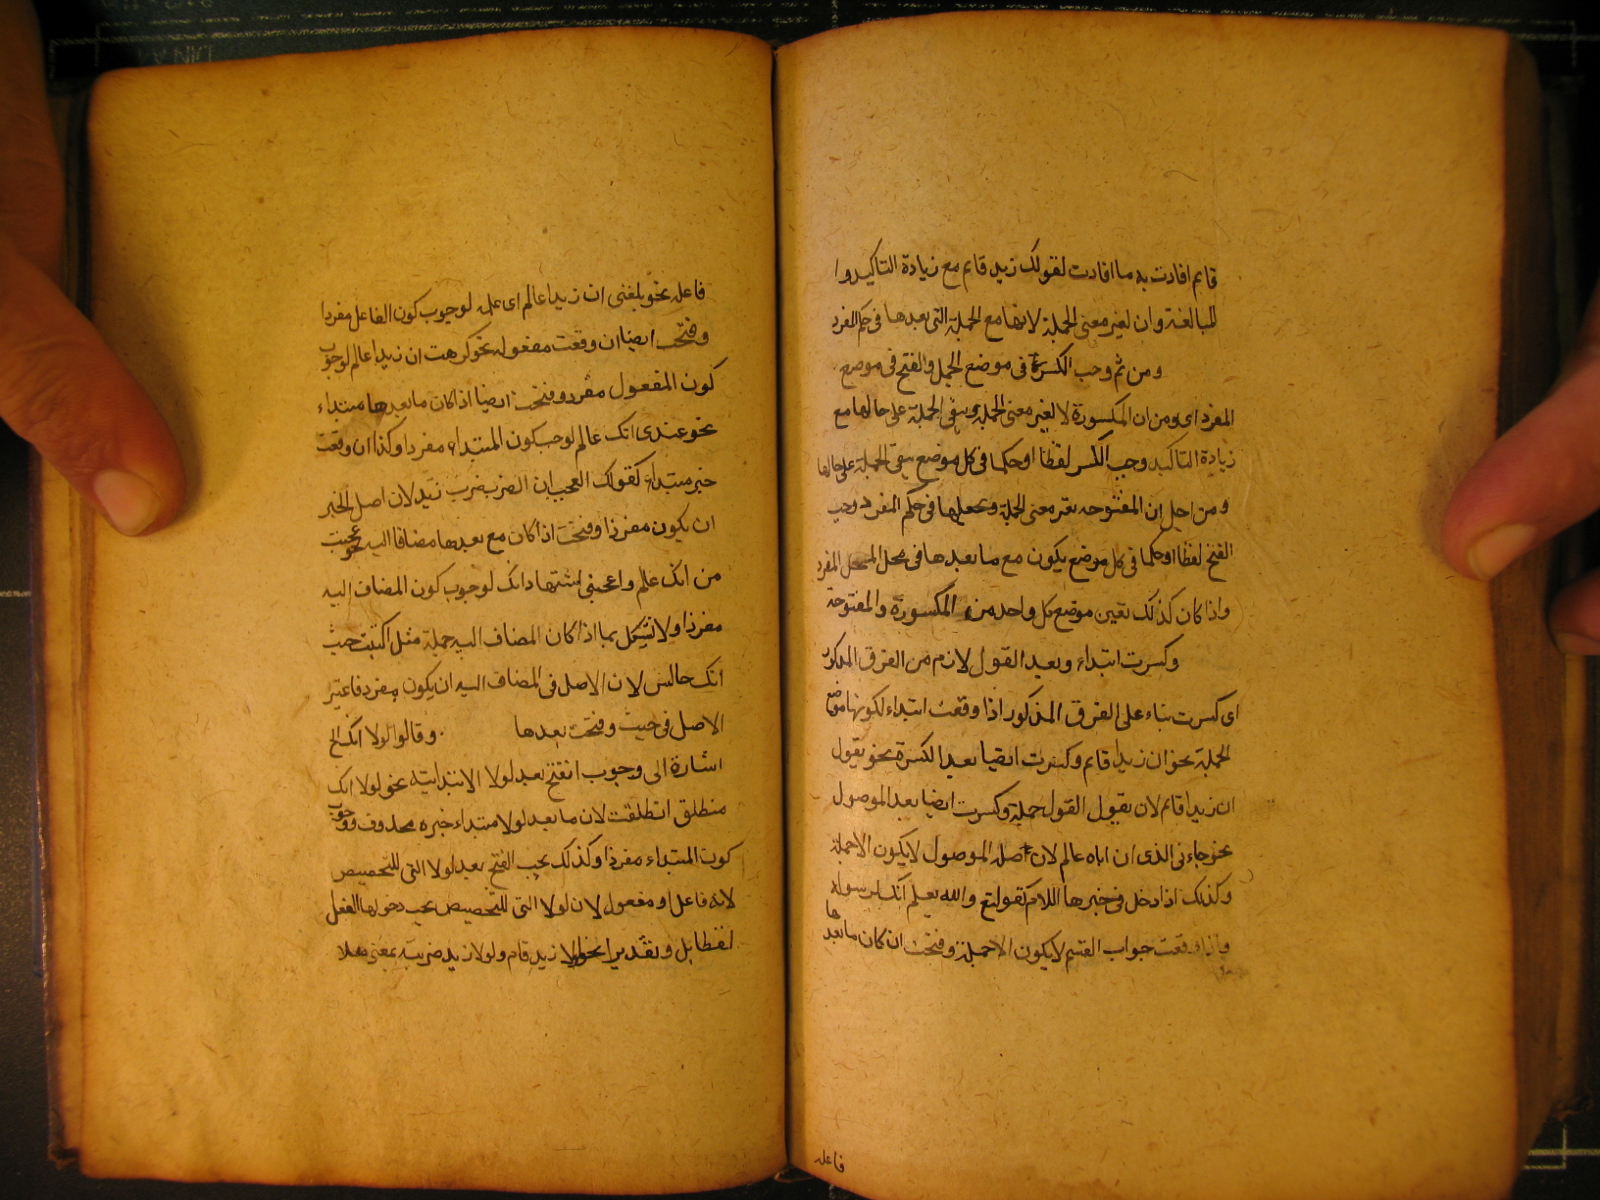 قايم افادت به ما افادت لقولك زيد قايم مع زيادة التاكيد و ا
لمبالغة وان لغير معنى الجملة لانها مع الجملة التى بعدها فى حكم المفرد
ومن ثم وجب الكسرة فى موضع الجمل والفتح فى موضع
المفرد اى ومن ان المكسورة لا لغير معنى الجملة ويبقى الجملة على حالها مع
زيادة التاكيد وجب الكسر لفظا او حكما فى كل موضع يبقى الجملة على حالها
ومن اجل ان المفتوحه يغير معنى الجملة ويجعلها فى حكم المفرد وجب
الفتح لفظا او حكما فى كل موضع يكون مع ما بعدها فى محل المفرد
واذا كان كذلك تعين موضع كل واحد من المكسورة والمفتوحة
وكسرت ابتداء وبعد القول لازم من الفرق المذكور
اى كسرت بناء على الفرق المذكور اذا وقعت ابتداء لكونها موضع
الجملة نحو ان زيدا قايم وكسرت ايضا بعد الكسرة نحو يقول
ان زيدا قايم لان يقول القول جملة وكسرت ايضا بعد الموصول
نحو جاءنى الذى ان اباه عالم لان اصله الموصول لا يكون الا جملة
وكذلك اذا دخل فى خبرها اللام كقوله تع والله يعلم انك لرسوله
واذا وقعت جواب القسم لا يكون الا جملة وفتحت ان كان ما بعدها
فاعله
فاعله نحو بلغنى ان زيدا عالم اى علمه لوجوب كون الفاعل مفردا
وفتحت ايضا ان وقعت مفعوله نحو كرهت ان زيدا عالم لوجوب
كون المفعول مفرد وفتحت ايضا اذا كان ما بعدها مبتداء
نحو عندى انك عالم لوجب كون المبتداء مفردا وكذا ان وقعت
خبر مبتداء كقولك العجب ان الضرب ضرب زيد لان اصل الخبر
ان يكون مفردا وفتحت اذا كان مع بعدها مضافا اليه نحو عجبت
من انك عالم واعجبنى اشتهاد انك لوجوب كون المضاف اليه
مفردا ولا يشكل بما اذا كان المضاف اليه جملة مثل اكتبت حيث
انك جالس لان الاصل فى المضاف اليه ان يكون مفرد فاعتبر
الاصل فى حيث وفتحت بعدها وقالوا لولا انك الخ
اشارة الى وجوب انفتح بعد لولا الابتدايية نحو لولا انك
منطلق انطلقت لان ما بعد لولا مبتداء خبره محذوف ووجوب
كون المبتداء مفردا وكذلك يجب الفتح بعد لولا التى للتحضيض
لانه فاعل او مفعول لان لولا التى للتحضيض يجب دخولها الفعل
لفظا بل وتقديرا نحو لولا زيد قام ولولا زيد ضربته بمعنى هلا